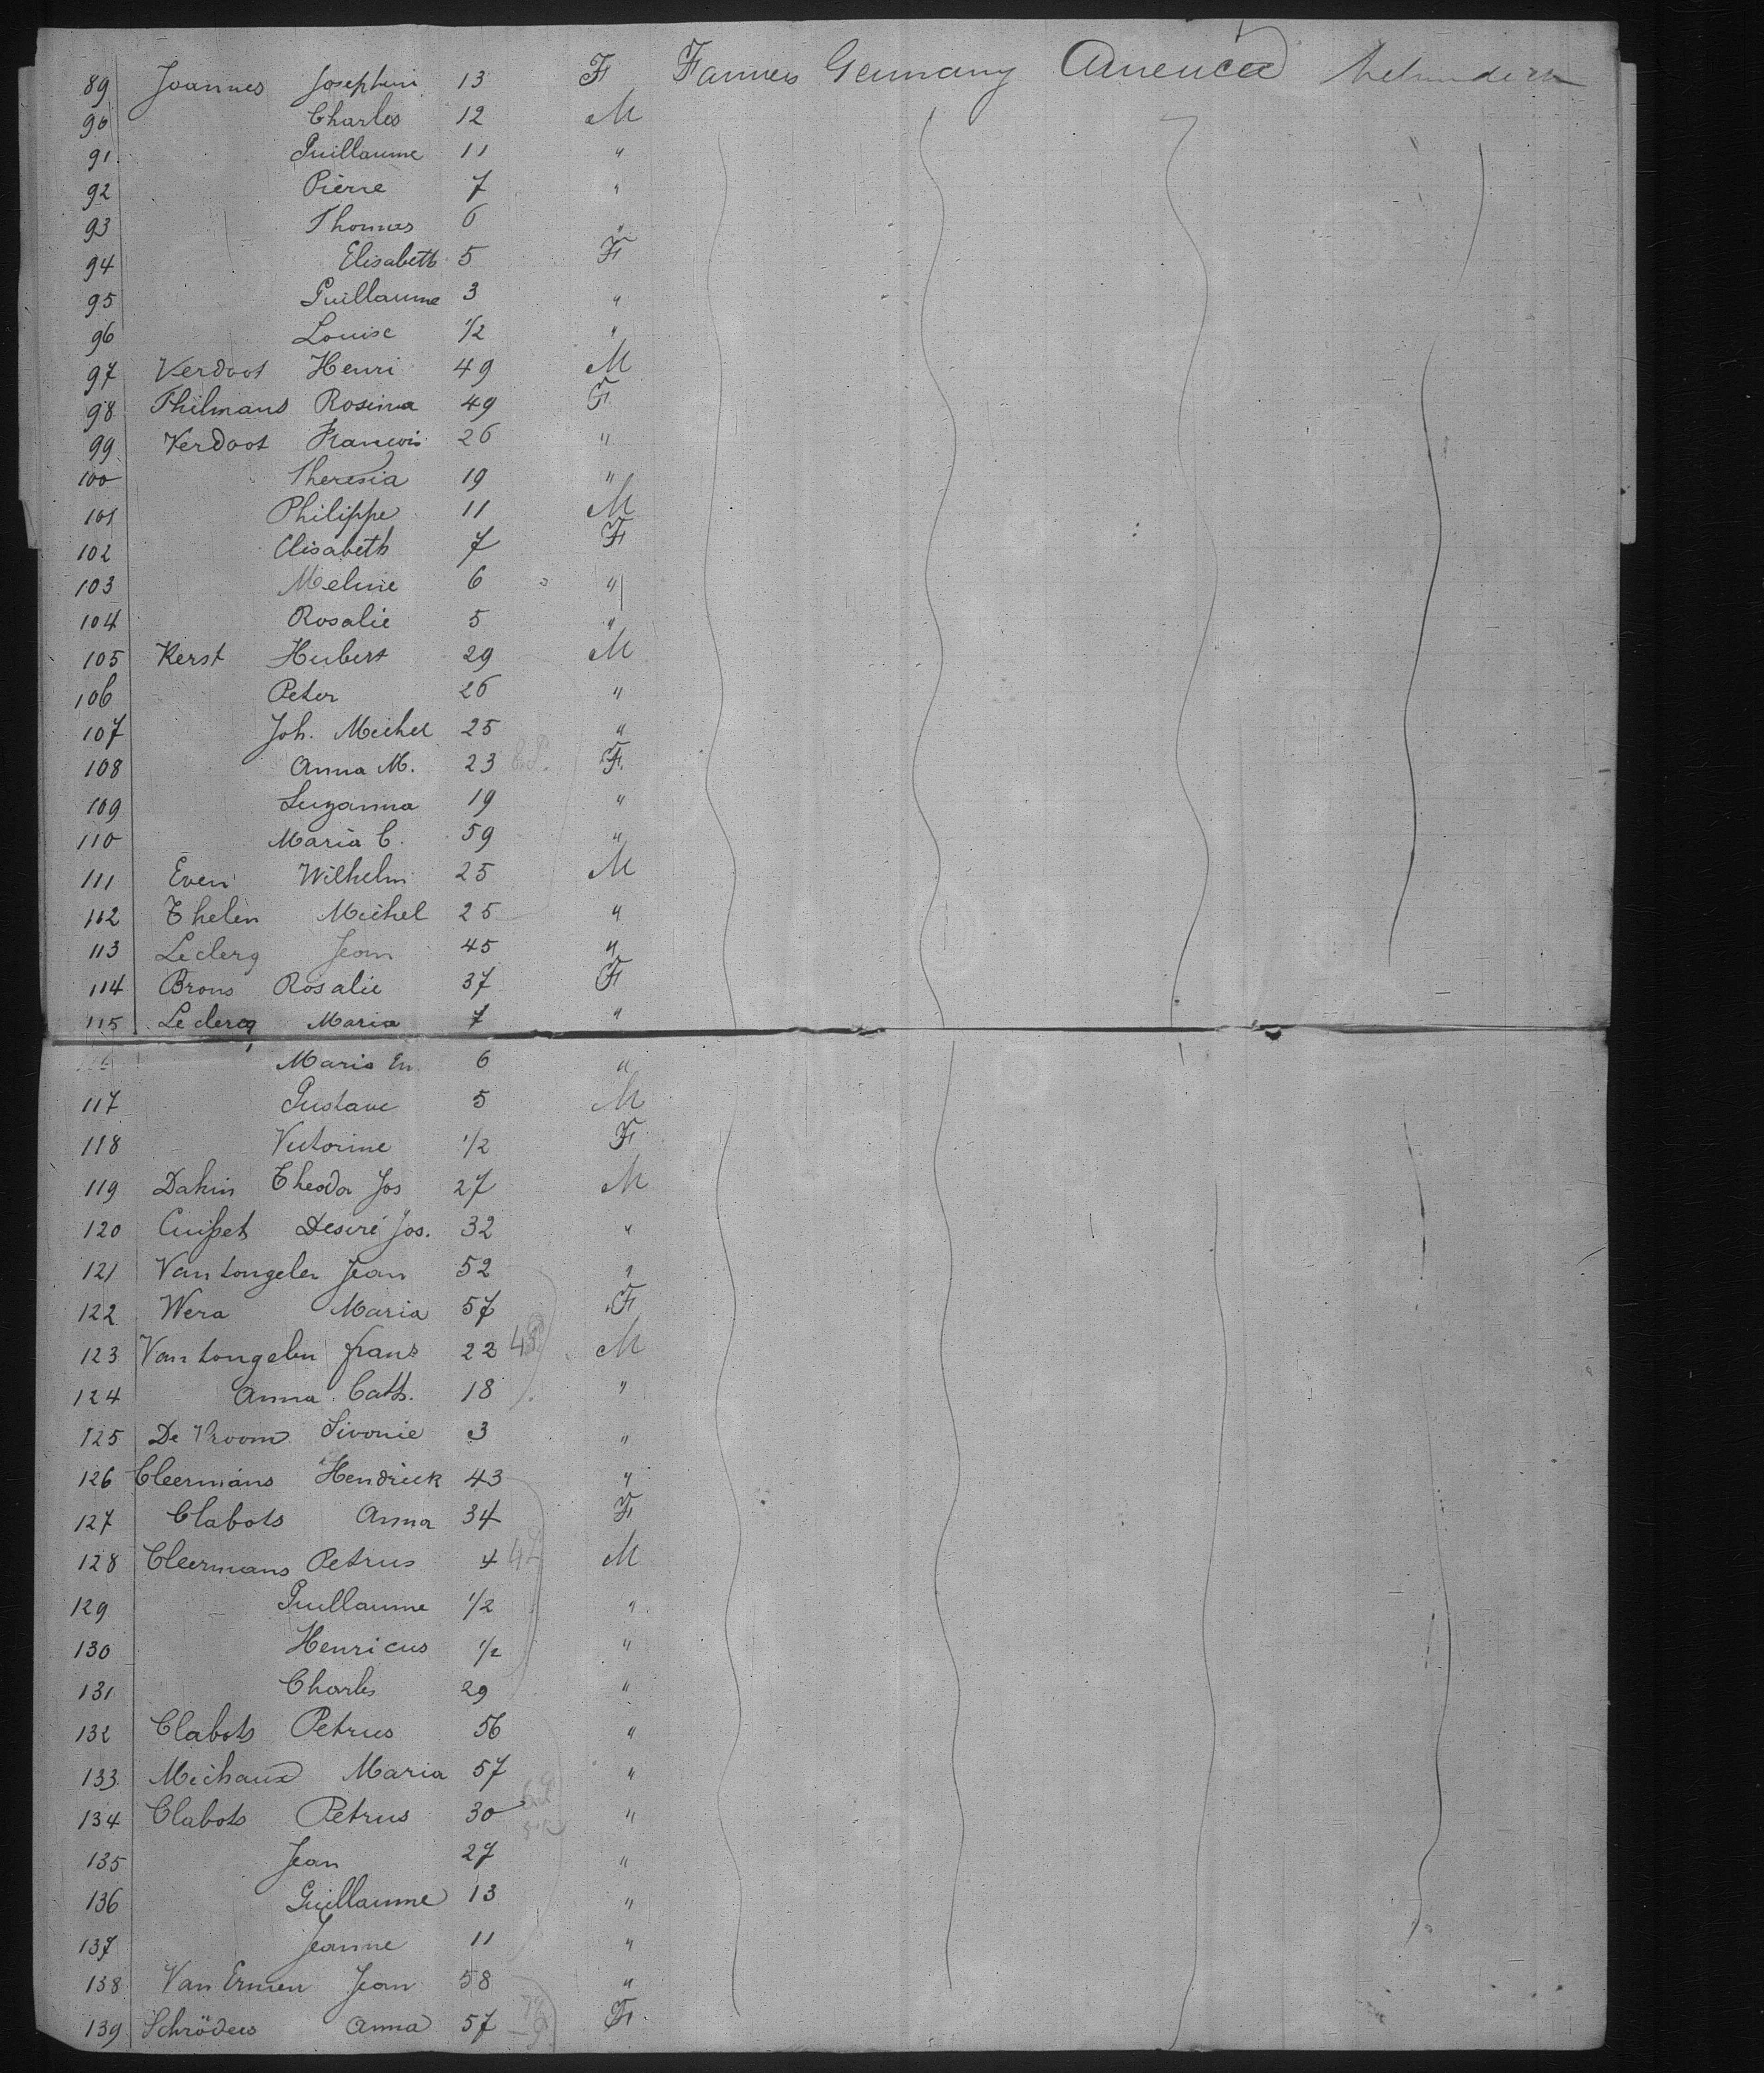 89 Joannes Josephini 13 F Farmers Germany America
90 Charles 12 M
91 Guillaume 11 "
92 Pierre 7 "
93 Thomas 6 "
94 Elisabeth 5 F
95 Guillaume 3 "
96 Louise 1/2 "
97 Verdoot Henri 49 M
98 Thilmans Rosina 49 F
99 Verdoot Francois 26 "
100 Theresia 19 "
101 Philippe 11 M
102 Elisabeth 7 F
103 Meline 6 "
104 Rosalie 5 "
105 Kerst Hubert 29 M
106 Peter 26 "
107 Joh. Michel 25 "
108 Anna M. 23 F
109 Suzanna 19 "
110 Maria C. 59 "
111 Even Wilhelm 25 M
112 Thelen Michel 25 "
113 Leclerq Jean 45 "
114 Brons Rosalie 37 F
115 Leclercq Maria 7 "
Maria Em. 6 "
117 Gustave 5 M
118 Victorine 1/2 F
119 Dakin Theodor Jos 27 M
120 Cuisset Desiré Jos. 32 "
121 Van Longelen Jean 52 "
122 Wera Maria 57 F
123 Van Longelen Frans 22 M
124 Anna Cath. 18 "
125 De Vroom Sivonie 3 "
126 Cleermans Hendrick 43 "
127 Clabots Anna 34 F
128 Cleermans Petrus 4 M
129 Guillaume 1/2 "
130 Henricus 1/2 "
131 Charles 29 "
132 Clabots Petrus 56 "
133 Michaux Maria 57 "
134 Clabots Petrus 30 "
135 Jean 27 "
136 Guillaume 13 "
137 Jeanne 11 "
138 Van Ermen Jean 58 "
139 Schröders Anna 57 F.